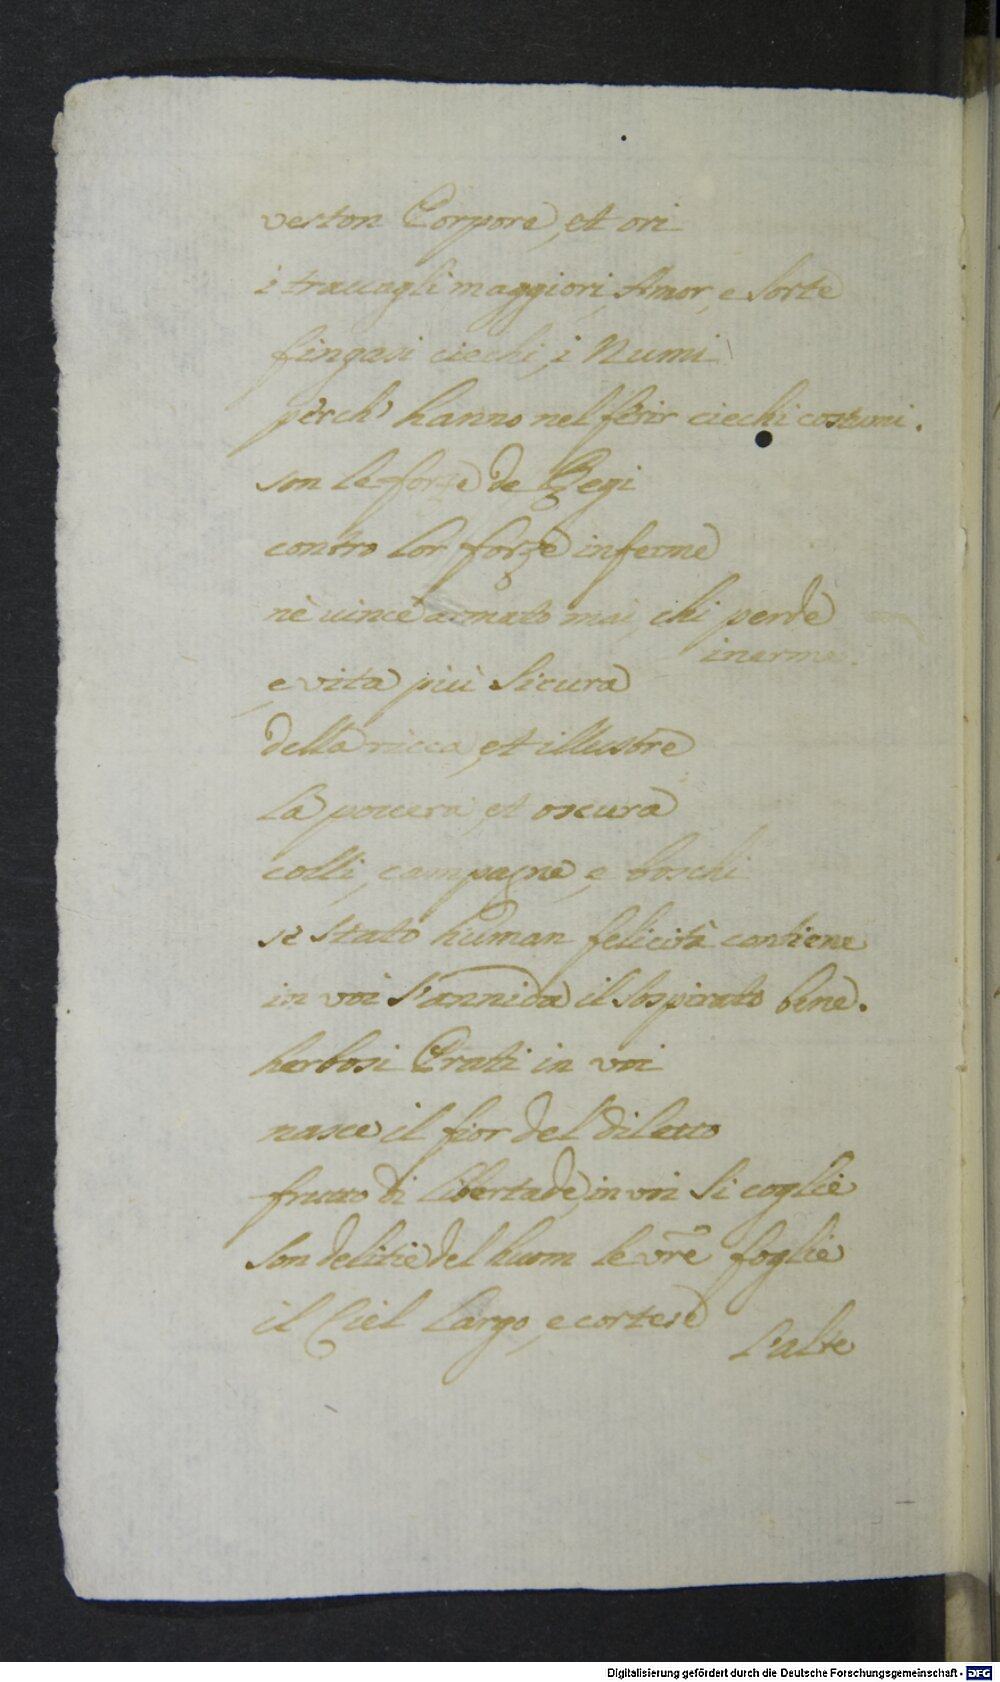 veston Porpore, et ori
i travagli maggiori, Amor, e Sorte
fingasi ciechi, i Numi
perch' hanno nel ferir ciechi costumi.
son le forze de Regi
contro lor forze inferme
nè vince armato mai, chi perde
inerme.
e vita più Sicura
della ricca, et illustre
La povera, et oscura
colli, campagne, e boschi
se stato human felicità contiene
in voi s'annida il sospirato bene.
herbosi Prati in voi
nasce il fior del diletto
frutto di libertade, in voi Si coglie
Son delitie del huom le vre foglie
il Ciel Largo, e cortese
L'alte
Digitalisierung gefördert durch die Deutsche Forschungsgemeinschaft - DFG